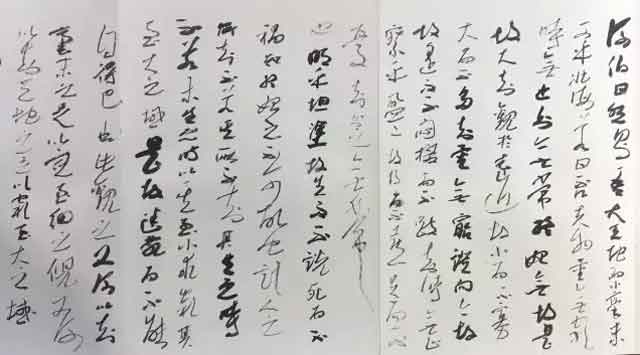 河伯曰然則吾大天地而小毫末
可乎北海若曰否夫物量無窮
時無止分無常終始無故是
故大知觀於遠近故小而不寡
大而不多知量無窮證向今故
故遙而不悶掇而不跂知時無止
察乎盈虛故得而不喜失而不
憂知分之無常也
明乎坦塗故生而不說死而不
禍知終始之不可故也計人之
所知不若其所不知其生之時
不若未生之時以其至小求窮其
至大之域是故迷亂而不能
自得也由此觀之又何以知
毫末之足以定至細之倪又何
以知天地之足以窮至大之域